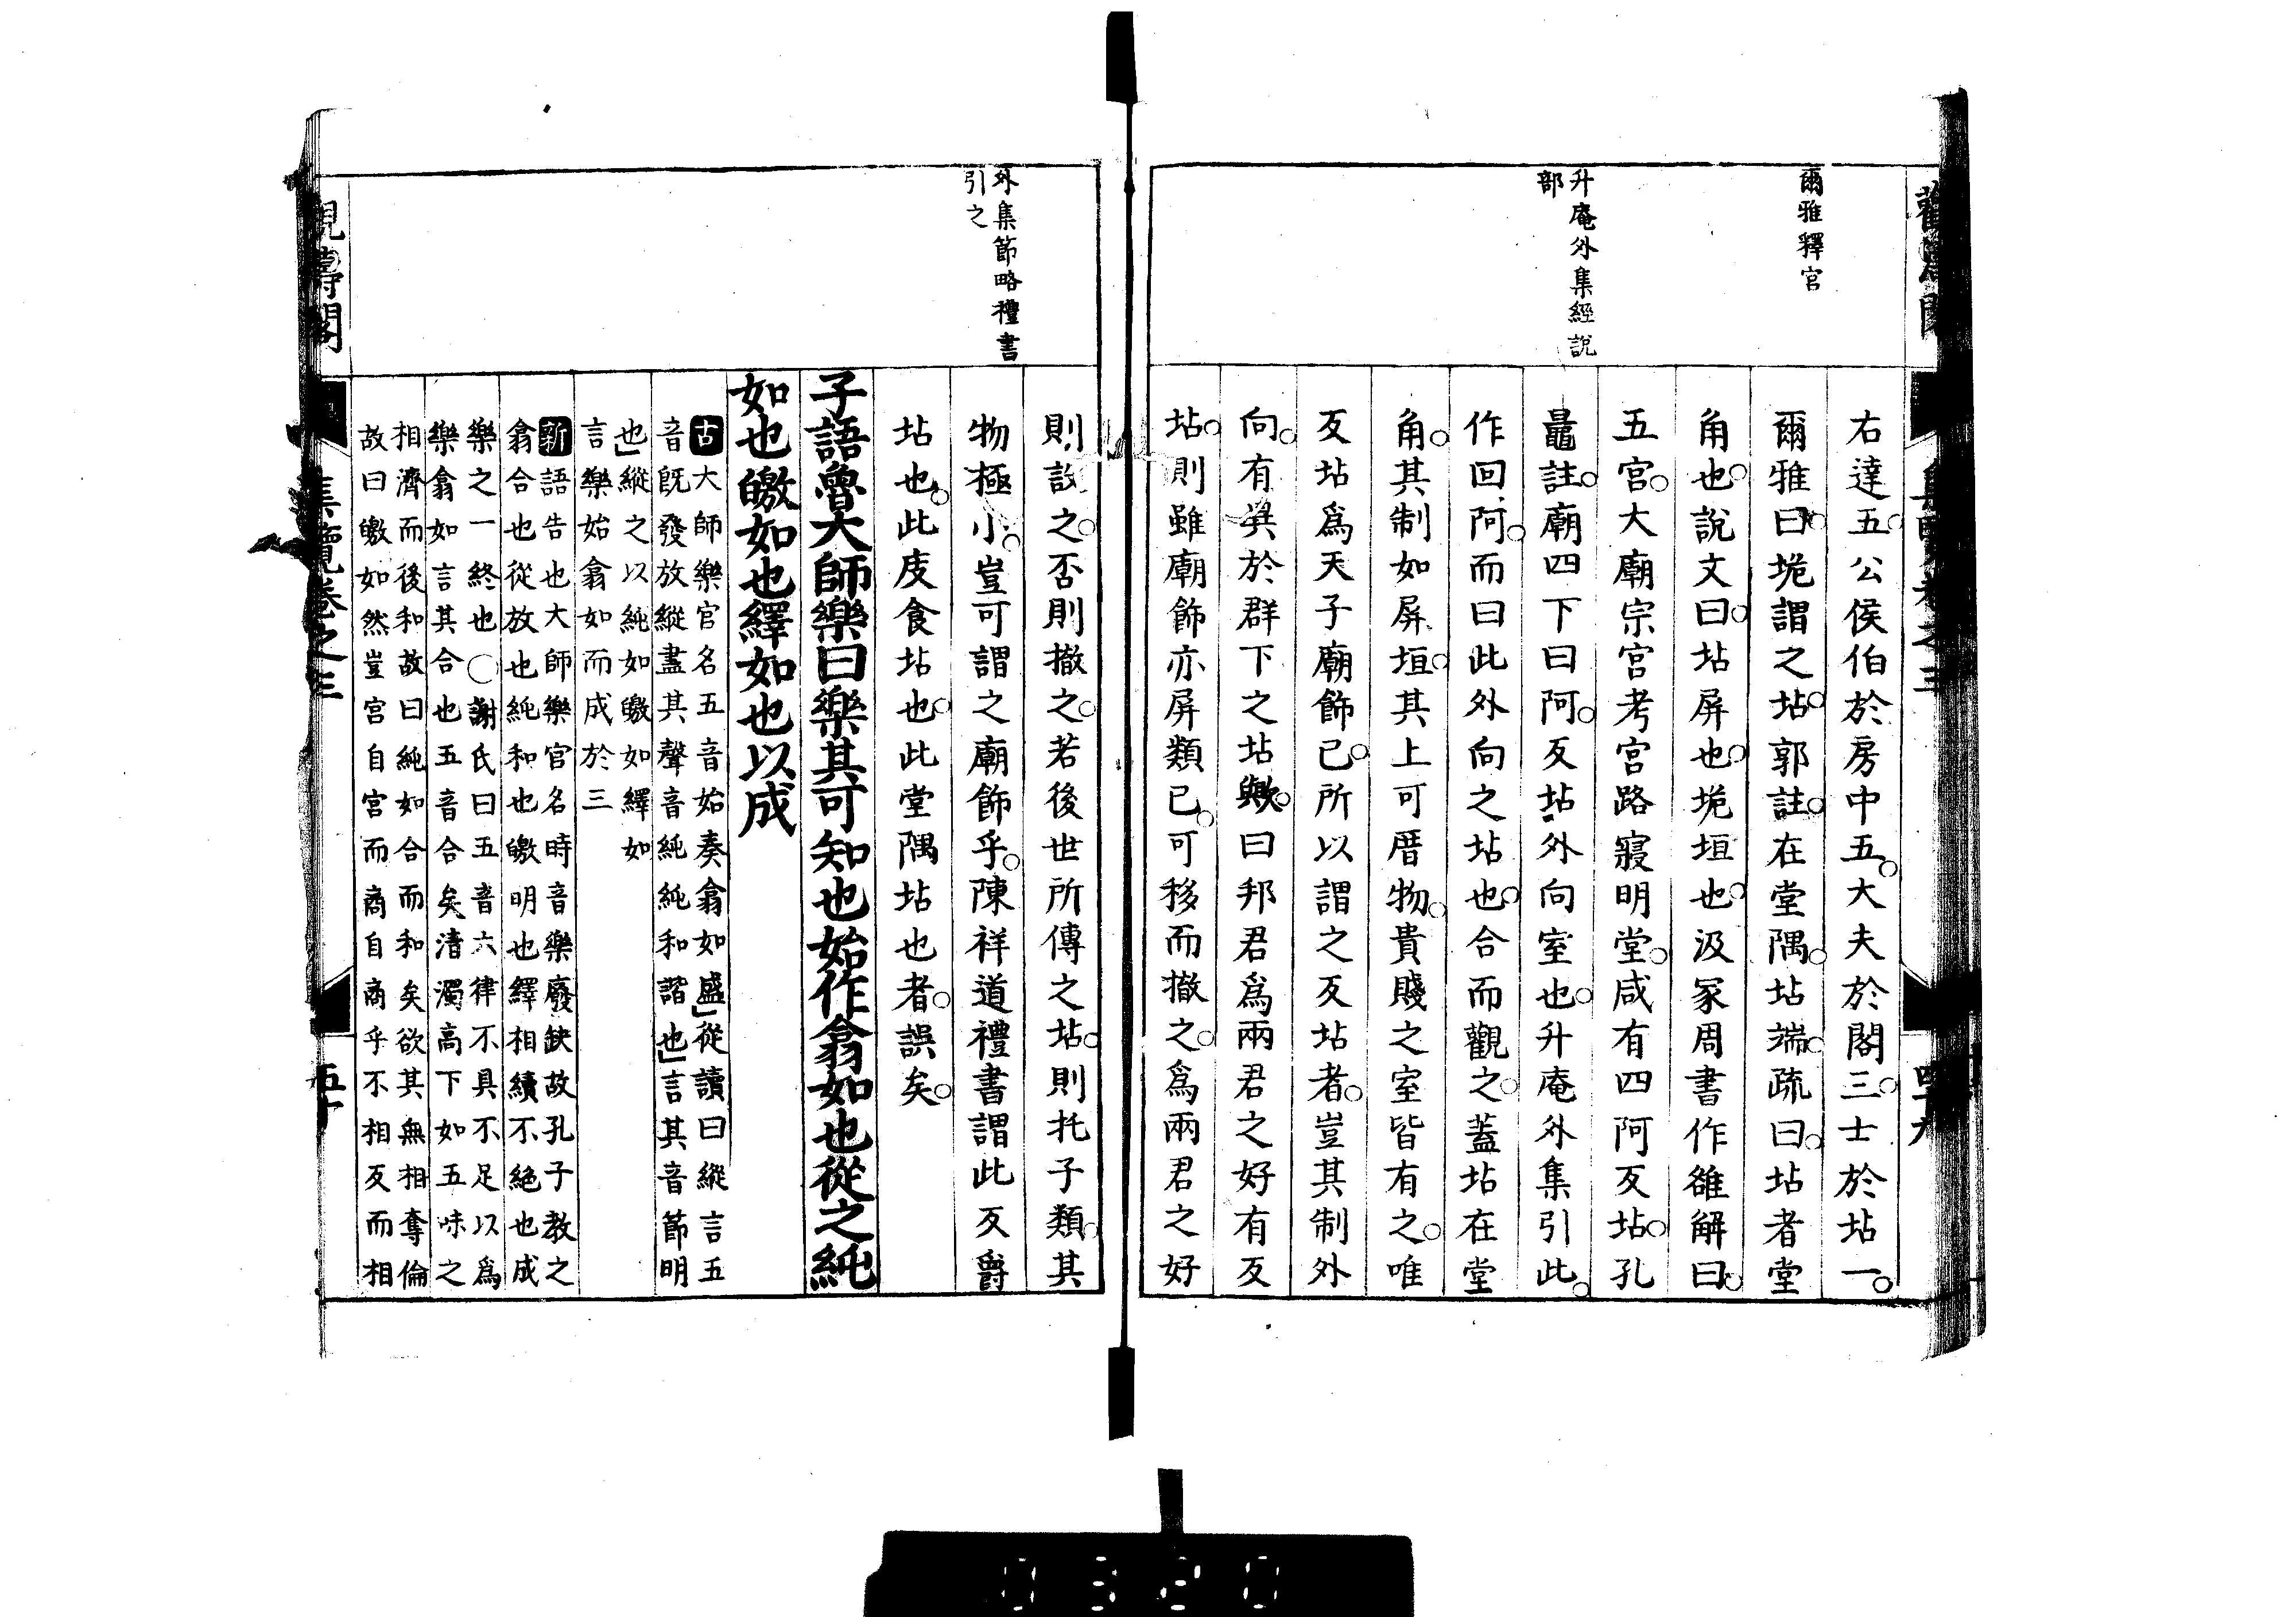 爾雅釋宮
升庵外集經說
部
右達五公侯伯於房中五大夫於閣三士於坫一
爾雅曰垝謂之坫郭註在堂隅坫端疏曰坫者堂
角也說文曰坫屏也垝垣也汲冢周書作雒解曰
五宮大廟宗宮考宮路寢明堂咸有四阿反坫孔
鼂註廟四下曰阿反坫外向室也升庵外集引此
作回阿而曰此外向之坫也合而觀之蓋坫在堂
角其制如屏垣其上可厝物貴賤之室皆有之唯
反坫爲天子廟飾已所以謂之反坫者豈其制外
向有異於群下之坫歟曰邦君爲兩君之好有反
坫則雖廟飾亦屏類已可移而撤之爲兩君之好
外集節略禮書
引之
則設之否則撤之若後世所傳之坫則托子類其
物極小豈可謂之廟飾乎陳祥道禮書謂此反爵
坫也此庋食坫也此堂隅坫也者誤矣
子語魯大師樂曰樂其可知也始作翕如也從之純
如也皦如也繹如也以成
古大師樂官名五音始奏翕如盛」從讀曰縱言五
音既發放縱盡其聲音純純和諧也」言其音節明
也」縱之以純如皦如繹如
言樂始翕如而成於三
新語告也大師樂官名時音樂廢缺故孔子教之
翕合也從放也純和也皦明也繹相續不絕也成
樂之一終也○謝氏曰五音六律不具不足以爲
樂翕如言其合也五音合矣清濁高下如五味之
相濟而後和故曰純如合而和矣欲其無相奪倫
故曰皦如然豈宮自宮而商自商乎不相反而相
集覽卷之三
0320